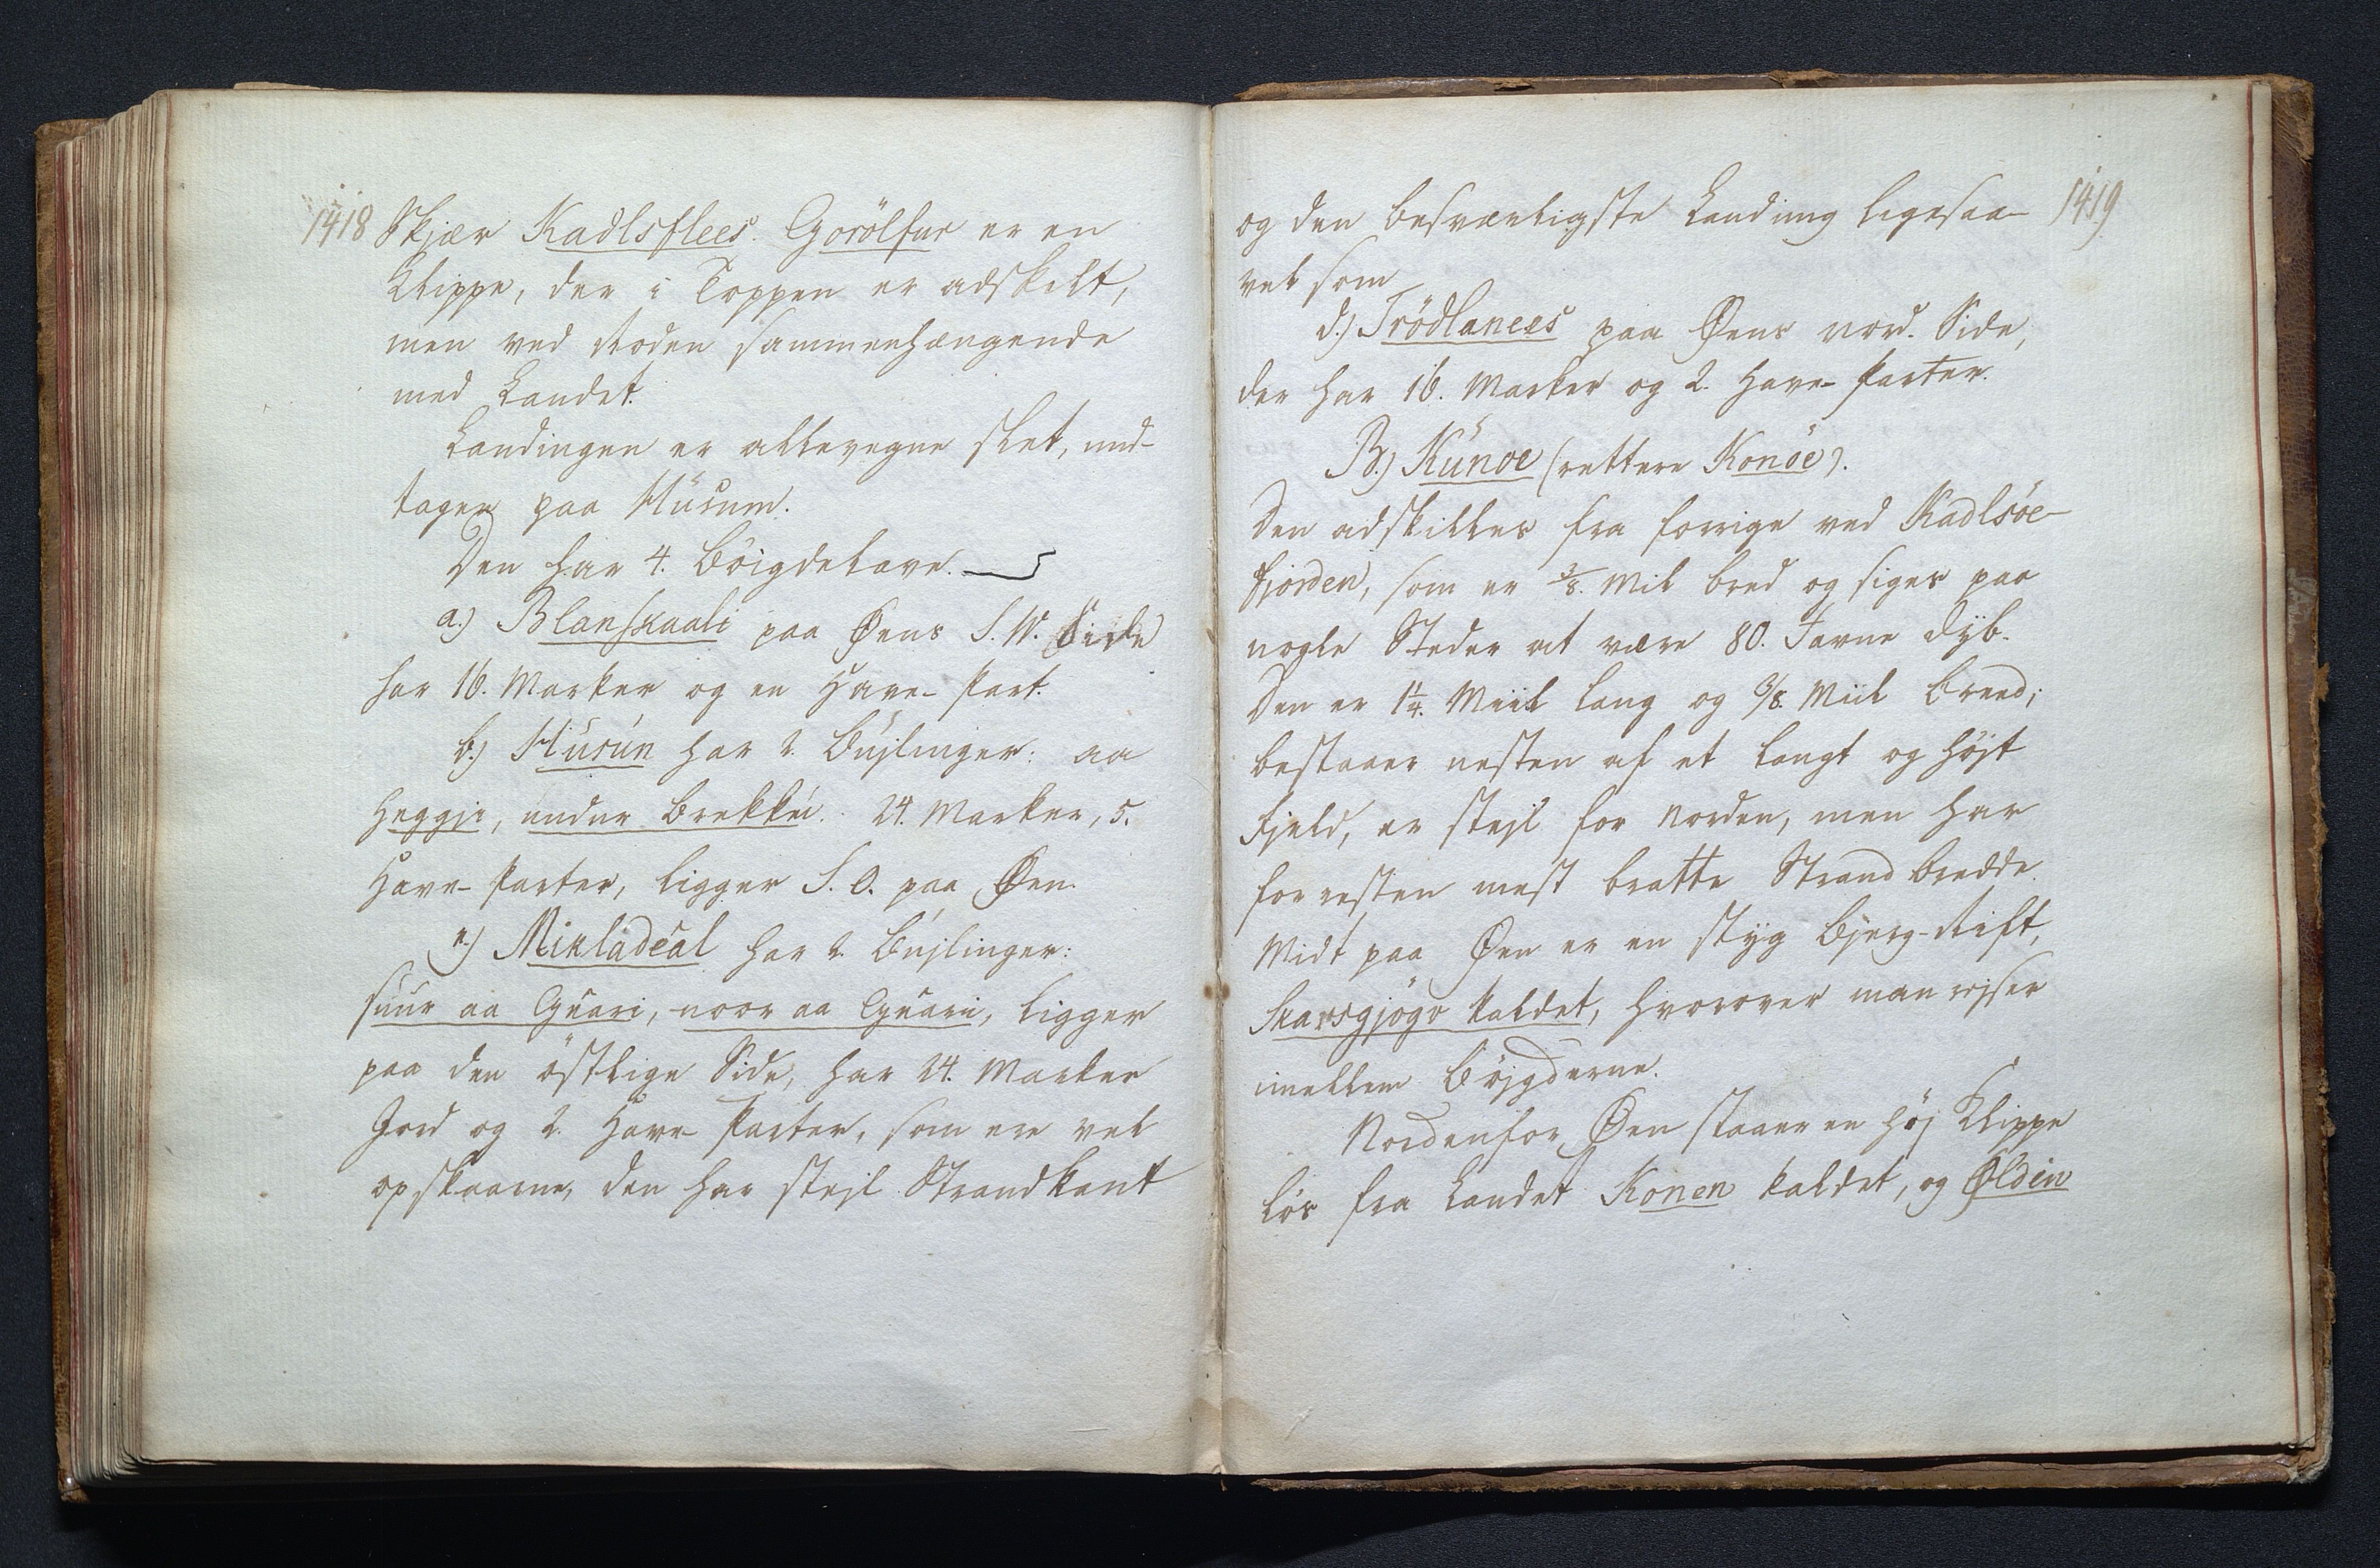 1418 Skjær Kadlsflees. Gorölfur er en
Klippe, der i Toppen er adskilt,
men ved Roden sammenhængende
med Landet.
Landingen er allevegne slet, und-
tagen paa Hüsum.
Den har 4. Böigdelave.
a.) Blanskaali paa Øens S.W. Side
har 16. Marker og en Have-Part.
b.) Húsún har 2. Büjlinger: aa
Heggji, undur Brekkú. 24. Marker, 5.
Have-Parter, ligger S.O. paa Øen.
c.) Mikladeal har 2. Büjlinger:
suur aa Gueari, noor aa Gueari, ligger
paa den östlige Side, har 24. Marker
Jord og 2. Have Parter, som ere vel
opskaarne, den har stejl Strandkant
1419
og den besværligste Landing ligesaa-
vel som
d.) Trödlanees paa Øens nord. Side,
der har 16. Marker og 2. Have-Parter.
B.) Kúnoe (rettere Konöe).
Den adskilles fra forrige ved Kadlsöe-
fjorden, som er 3/8. Mil bred og siges paa
nogle Steder at være 80. Favne dÿb.
Den er 1 1/4. Miil lang og 3/8. Miil breed;
bestaaer nesten af et langt og höjt
Fjeld, er stejl for Norden, men har
forresten mest bratte Strandbredde.
Midt paa Øen er en stÿg Bjerg-Rift,
Skarsgjögv kaldet, hvorover man rejser
imellem Böjgderne.
Nordenfor Øen staaer en höj Klippe
lös fra Landet Konen kaldet, og Øldin